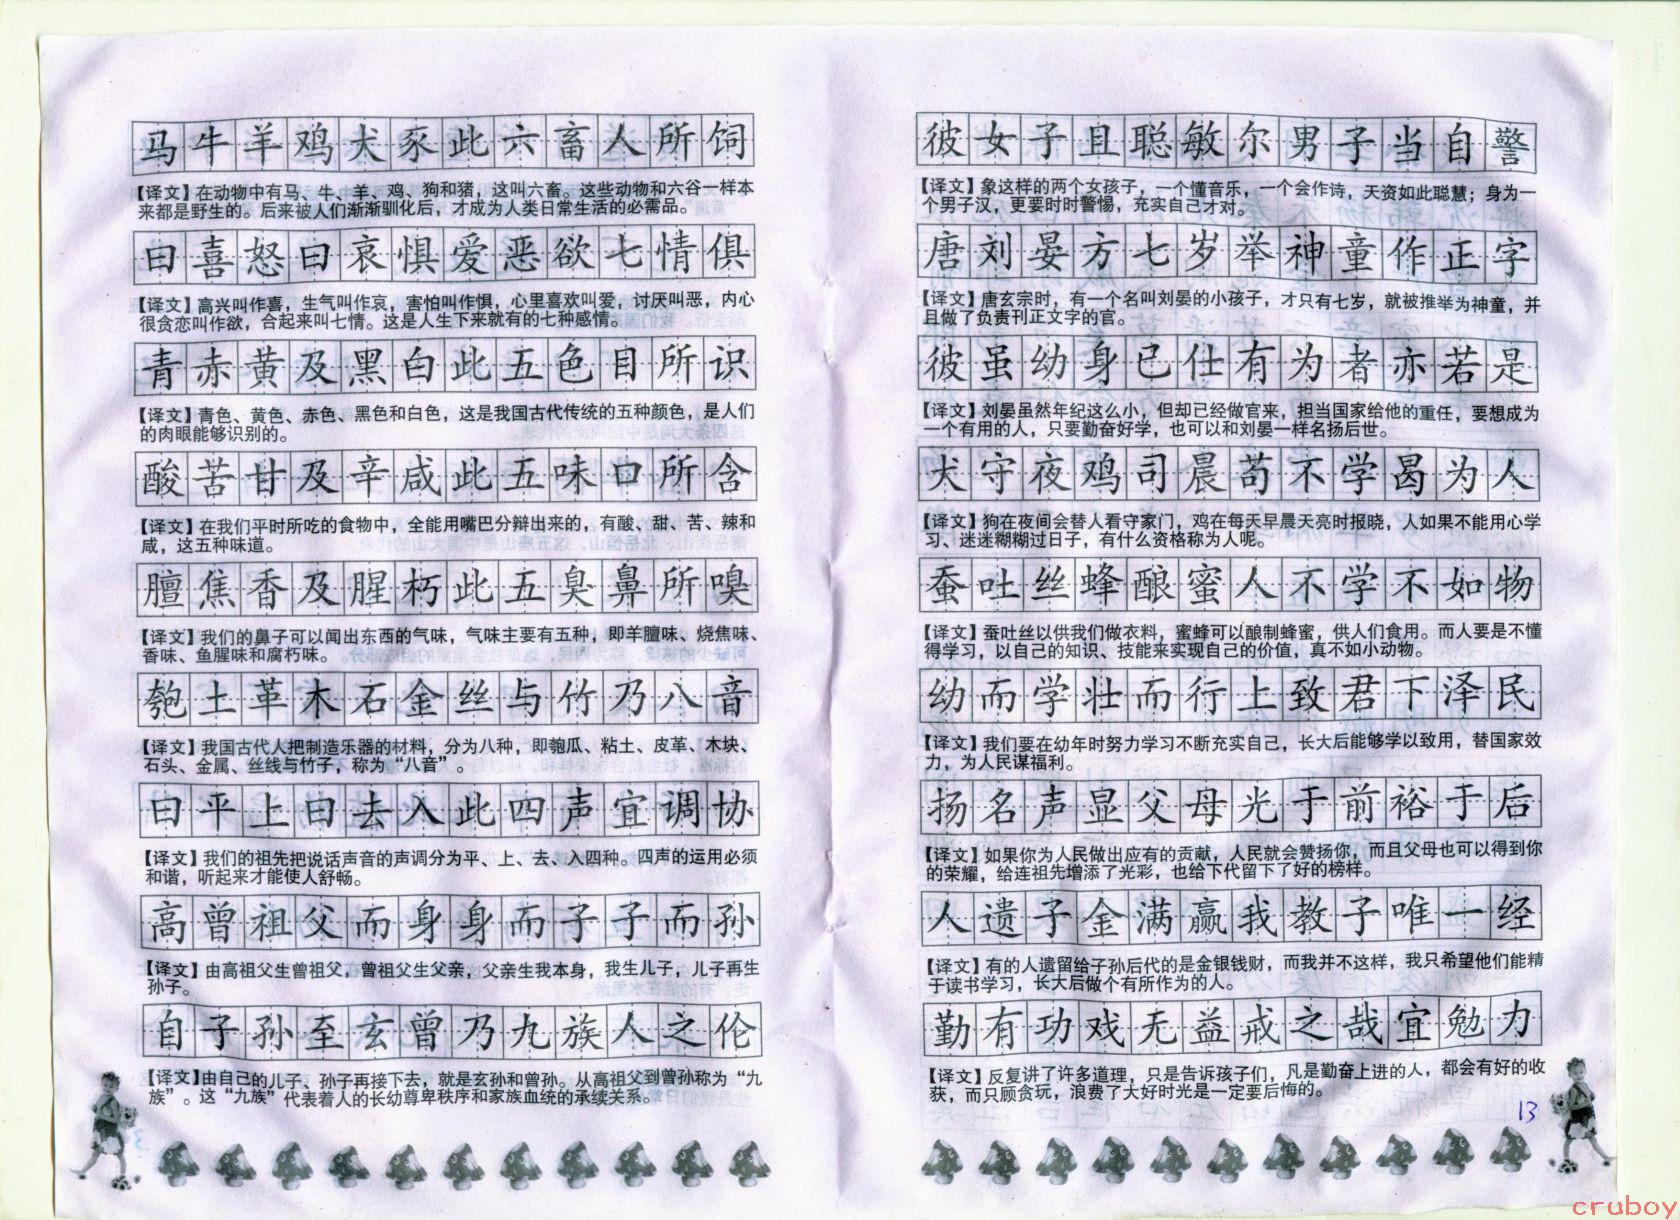 马牛羊鸡犬豕此六畜人所饲
【译文】在动物中有马、牛、羊、鸡、狗和猪，这叫六畜。这些动物和六谷一样本
来都是野生的。后来被人们渐渐驯化后，才成为人类日常生活的必需品。
曰喜怒曰哀惧爱恶欲七情俱
【译文】高兴叫作喜，生气叫作哀，害怕叫作惧，心里喜欢叫爱，讨厌叫恶，内心
很贪恋叫作欲，合起来叫七情。这是人生下来就有的七种感情。
青赤黄及黑白此五色目所识
【译文】青色、黄色、赤色、黑色和白色，这是我国古代传统的五种颜色，是人们
的肉眼能够识别的。
酸苦甘及辛咸此五味口所含
【译文】在我们平时所吃的食物中，全能用嘴巴分辩出来的，有酸、甜、苦、辣和
咸，这五种味道。
膻焦香及腥朽此五臭鼻所嗅
【译文】我们的鼻子可以闻出东西的气味，气味主要有五种，即羊膻味、烧焦味、
香味、鱼腥味和腐朽味。
匏土革木石金丝与竹乃八音
【译文】我国古代人把制造乐器的材料，分为八种，即匏瓜、粘土、皮革、木块、
石头、金属、丝线与竹子，称为“八音”。
曰平上曰去入此四声宜调协
【译文】我们的祖先把说话声音的声调分为平、上、去、入四种。四声的运用必须
和谐，听起来才能使人舒畅。
高曾祖父而身身而子子而孙
【译文】由高祖父生曾祖父，曾祖父生父亲，父亲生我本身，我生儿子，儿子再生
孙子。
自子孙至玄曾乃九族人之伦
【译文】由自己的儿子、孙子再接下去，就是玄孙和曾孙。从高祖父到曾孙称为“九
族”。这“九族”代表着人的长幼尊卑秩序和家族血统的承续关系。
彼女子且聪敏尔男子当自警
【译文】象这样的两个女孩子，一个懂音乐，一个会作诗，天资如此聪慧；身为一
个男子汉，更要时时警惕，充实自己才对。
唐刘晏方七岁举神童作正字
【译文】唐玄宗时，有一个名叫刘晏的小孩子，才只有七岁，就被推举为神童，并
且做了负责刊正文字的官。
彼虽幼身已仕有为者亦若是
【译文】刘晏虽然年纪这么小，但却已经做官来，担当国家给他的重任，要想成为
一个有用的人，只要勤奋好学，也可以和刘晏一样名扬后世。
犬守夜鸡司晨苟不学曷为人
【译文】狗在夜间会替人看守家门，鸡在每天早晨天亮时报晓，人如果不能用心学
习、迷迷糊糊过日子，有什么资格称为人呢。
蚕吐丝蜂酿蜜人不学不如物
【译文】蚕吐丝以供我们做衣料，蜜蜂可以酿制蜂蜜，供人们食用。而人要是不懂
得学习，以自己的知识、技能来实现自己的价值，真不如小动物。
幼而学壮而行上致君下泽民
【译文】我们要在幼年时努力学习不断充实自己，长大后能够学以致用，替国家效
力，为人民谋福利。
扬名声显父母光于前裕于后
【译文】如果你为人民做出应有的贡献，人民就会赞扬你，而且父母也可以得到你
的荣耀，给连祖先增添了光彩，也给下代留下了好的榜样。
人遗子金满赢我教子唯一经
【译文】有的人遗留给子孙后代的是金银钱财，而我并不这样，我只希望他们能精
于读书学习，长大后做个有所作为的人。
勤有功戏无益戒之哉宜勉力
【译文】反复讲了许多道理，只是告诉孩子们，凡是勤奋上进的人，都会有好的收
获，而只顾贪玩，浪费了大好时光是一定要后悔的。
13
cruboy